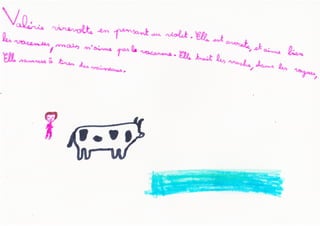 Valérie virevolte en pensant au violet. Elle est avocate, et aime bien
les vacances, mais n'aime pas le vacarme. Elle trait les vaches, dans les vagues,
Elle sauve le des vaisseaux.